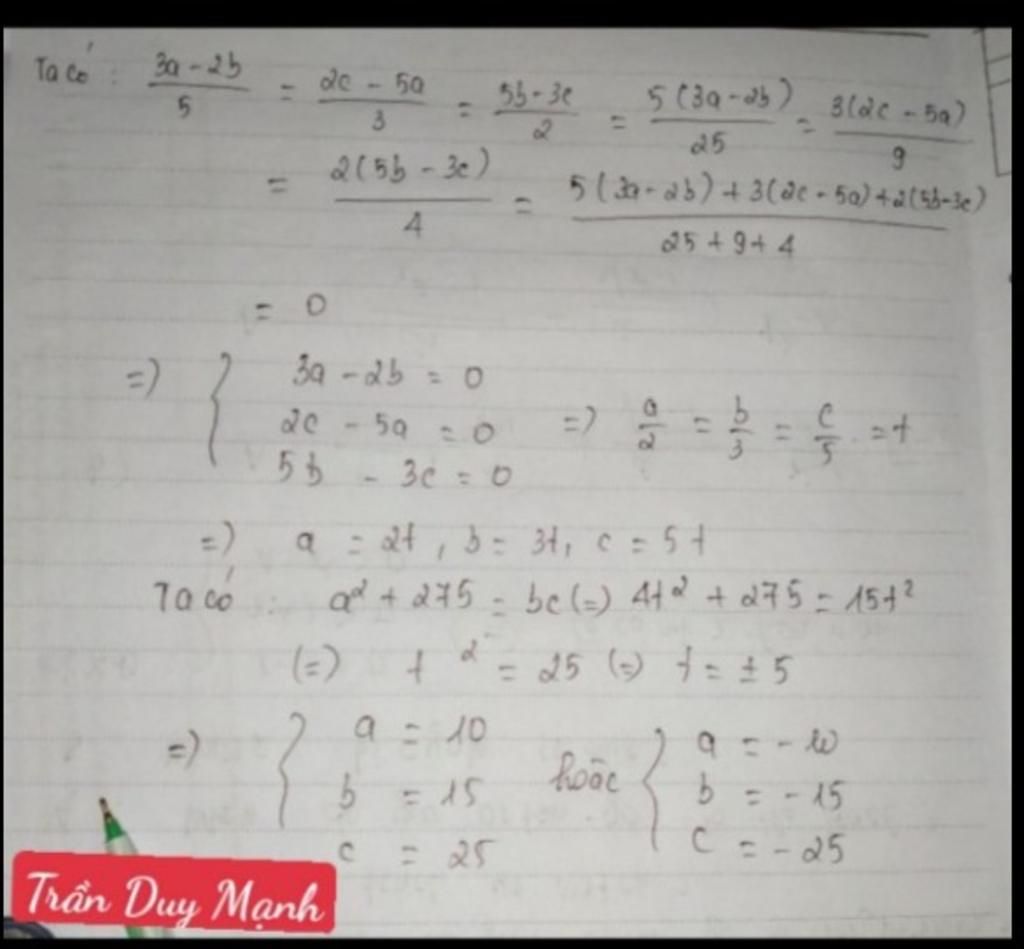 Ta có : (3a - 2b)/5 = (2c - 5a)/3 = (5b - 3c)/2 = 5(3a - 2b)/25 = 3(2c - 5a)/9
= 2(5b - 3c)/4 = (5(3a - 2b) + 3(2c - 5a) + 2(5b - 3c))/(25 + 9 + 4)
= 0
=) { 3a - 2b = 0
2c - 5a = 0 =) a/2 = b/3 = c/5 = t
5b - 3c = 0
=) a = 2t, b = 3t, c = 5t
Ta có : a² + 275 = bc (=) 4t² + 275 = 15t²
(=) t² = 25 (=) t = ± 5
=) { a = 10 hoặc { a = -10
b = 15 b = -15
c = 25 c = -25
Trần Duy Mạnh